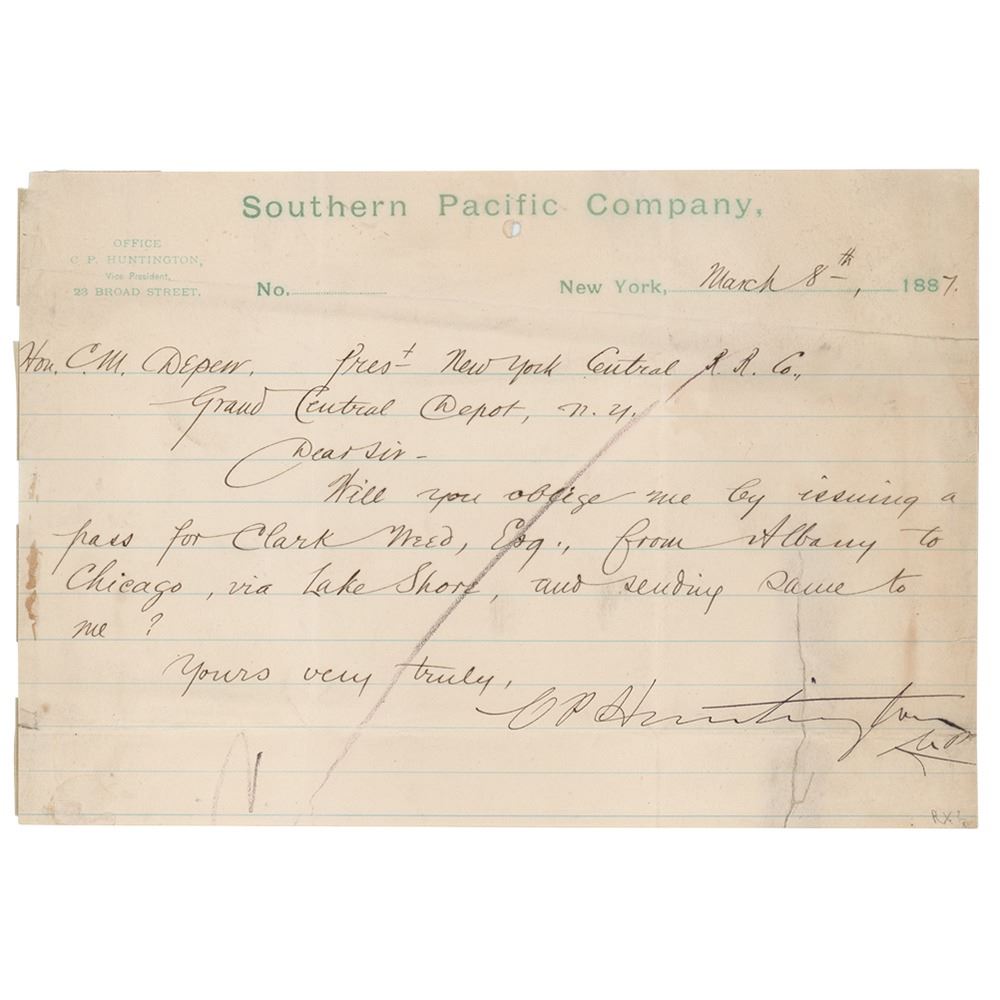 Southern Pacific Company,
OFFICE
C. P. HUNTINGTON,
Vice President,
23 BROAD STREET.
No.
New York, March 8th, 1887.
Hon. C. M. Depew. Prest New York Central R. R. Co.,
Grand Central Depot, N. Y.
Dear Sir –
Will you oblige me by issuing a
pass for Clark Weed, Esq., from Albany to
Chicago, via Lake Shore, and sending same to
me?
Yours very truly,
C P Huntington